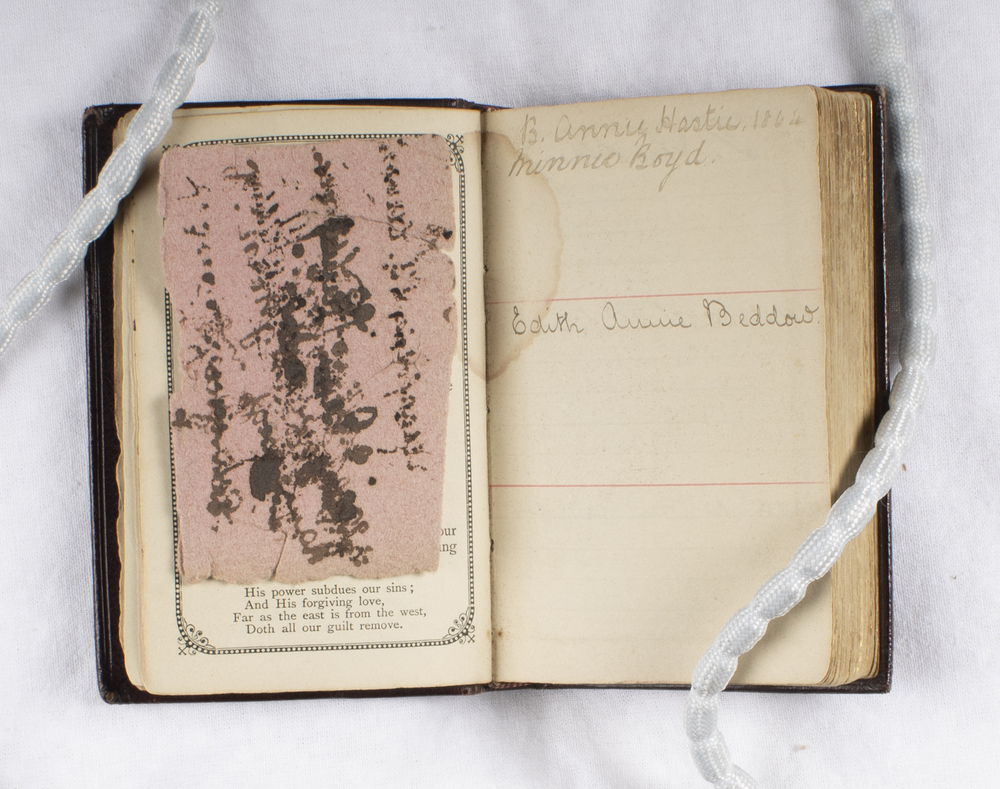 our
ing
His power subdues our sins;
And His forgiving love,
Far as the east is from the west,
Doth all our guilt remove.
B. Annie Hastie. 1864
Minnie Boyd.
Edith Annie Beddow.